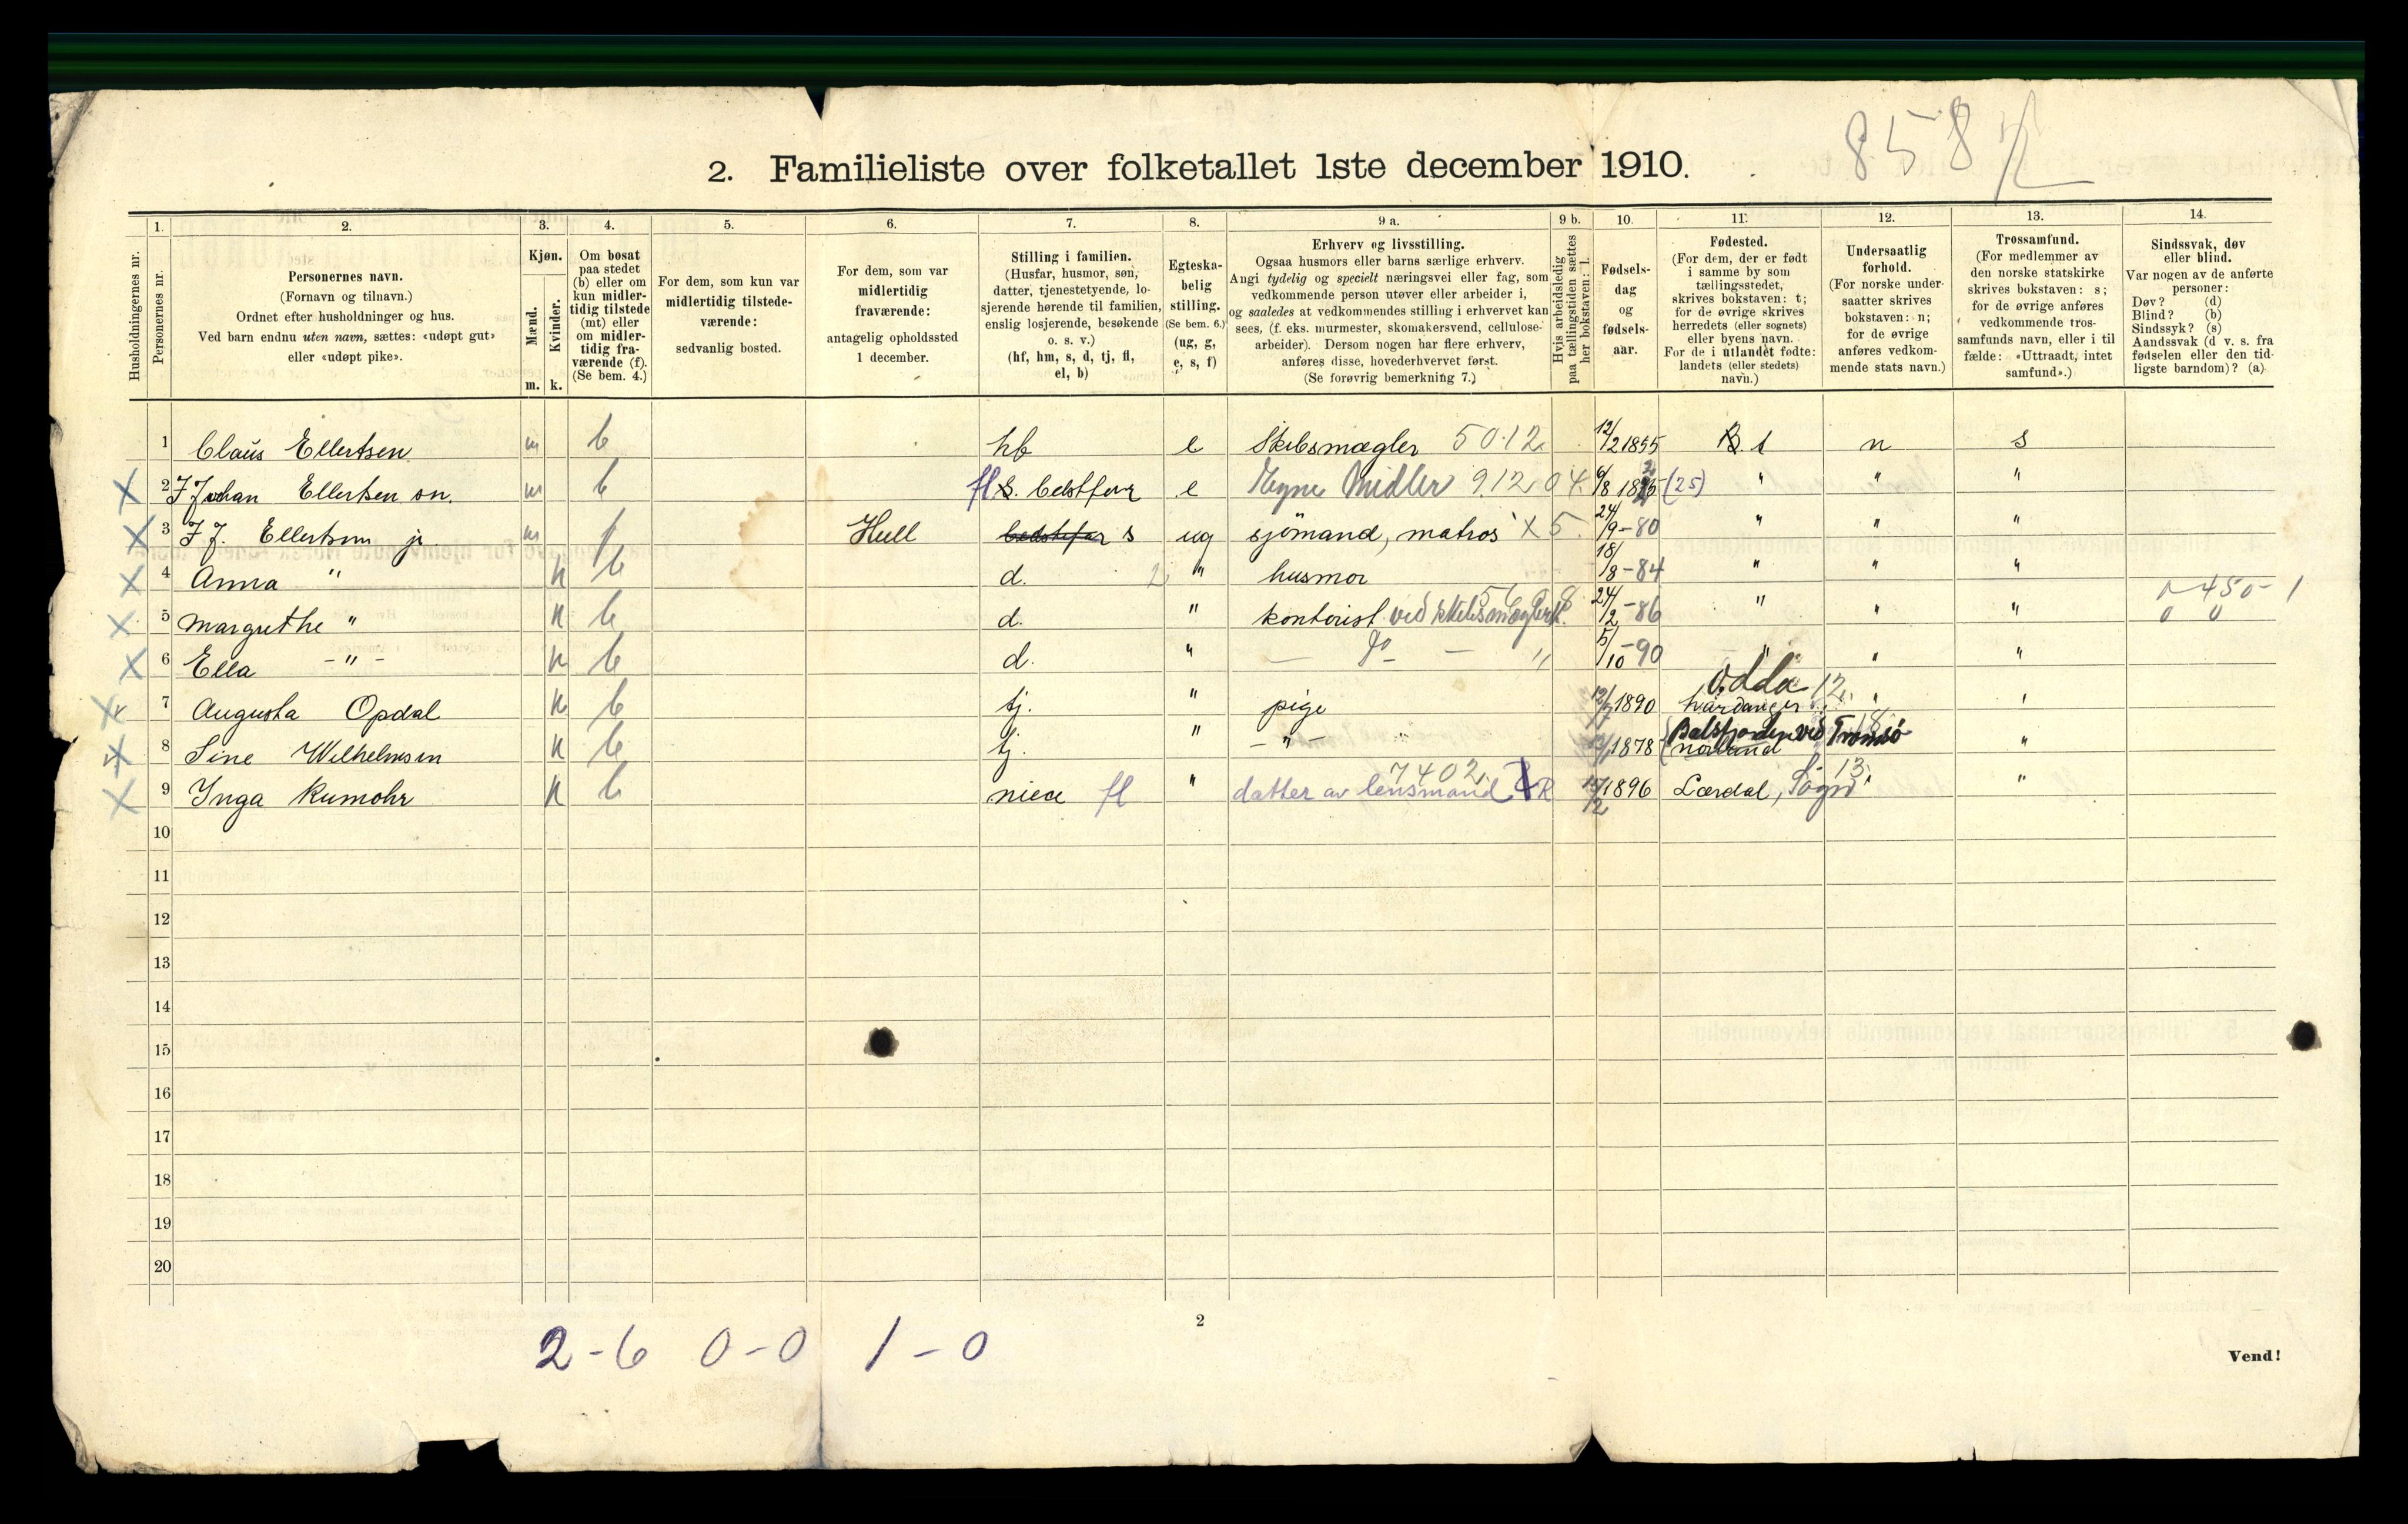 858
2. Familieliste over folketallet 1ste december 1910.
Husholdningernes nr.
1. Personernes nr.
2. Personernes navn. (Fornavn og tilnavn.) Ordnet efter husholdninger og hus. Ved barn endnu uten navn, sættes: «udøpt gut» eller «udøpt pike».
3. Kjøn. Mænd. m. Kvinder. k.
4. Om bosat paa stedet (b) eller om kun midlertidig tilstede (mt) eller om midlertidig fraværende (f). (Se bem. 4.)
5. For dem, som kun var midlertidig tilstedeværende: sedvanlig bosted.
6. For dem, som var midlertidig fraværende: antagelig opholdssted 1 december.
7. Stilling i familien. (Husfar, husmor, søn, datter, tjenestetyende, losjerende hørende til familien, enslig losjerende, besøkende o. s. v.) (hf, hm, s, d, tj, fl, el, b)
8. Egteskabelig stilling. (Se bem. 6.) (ug, g, e, s, f)
9 a. Erhverv og livsstilling. Ogsaa husmors eller barns særlige erhverv. Angi tydelig og specielt næringsvei eller fag, som vedkommende person utøver eller arbeider i, og saaledes at vedkommendes stilling i erhvervet kan sees, (f. eks. murmester, skomakersvend, cellulose-arbeider). Dersom nogen har flere erhverv, anføres disse, hovederhvervet først. (Se forøvrig bemerkning 7.)
9 b. Hvis arbeidsledig paa tællingstiden sættes her bokstaven: l.
10. Fødselsdag og fødselsaar.
11. Fødested. (For dem, der er født i samme by som tællingsstedet, skrives bokstaven: t; for de øvrige skrives herredets (eller sognets) eller byens navn. For de i utlandet fødte: landets (eller stedets) navn.)
12. Undersaatlig forhold. (For norske undersaatter skrives bokstaven: n; for de øvrige anføres vedkommende stats navn.)
13. Trossamfund. (For medlemmer av den norske statskirke skrives bokstaven: s; for de øvrige anføres vedkommende trossamfunds navn, eller i tilfælde: «Uttraadt, intet samfund».)
14. Sindssvak, døv eller blind. Var nogen av de anførte personer: Døv? (d) Blind? (b) Sindssyk? (s) Aandssvak (d v. s. fra fødselen eller den tidligste barndom)? (a)
1 Claus Ellertsen m b hf e Skibsmægler 50.12 12/2 1855 t n s
2 J Johan Ellertsen sn. m b fl bedstfar e Egne Midler 9.12.04. 6/8 1825 (25) " " "
3 J J. Ellertsen jr. m f Hull bedstefar s ug sjömand, matros X 5. 24/9 - 80 " " "
4 Anna " k b d. 2 " husmor 18/8 - 84 " " "
5 Margrethe " k b d. " kontorist ved skibsmægler 24/2 - 86 " " " 0 - 450 - 1
0 0
6 Ella - " - k b d. " - do - " 5/10 - 90 " " "
7 Augusta Opdal k b tj. " pige 12/7 1890 Odda 12. Hardanger " "
8 Sine Wilhelmsen k b tj. " - " - 1878 Balsfjorden ved Tromsö 18. norland "
9 Inga Rumohr k b niece fl " datter av lensmand 7402. R 15/12 1896 Lærdal, Sogn 13. " "
10
11
12
13
14
15
16
17
18
19
20
2
2 - 6 0 - 0 1 - 0
Vend!